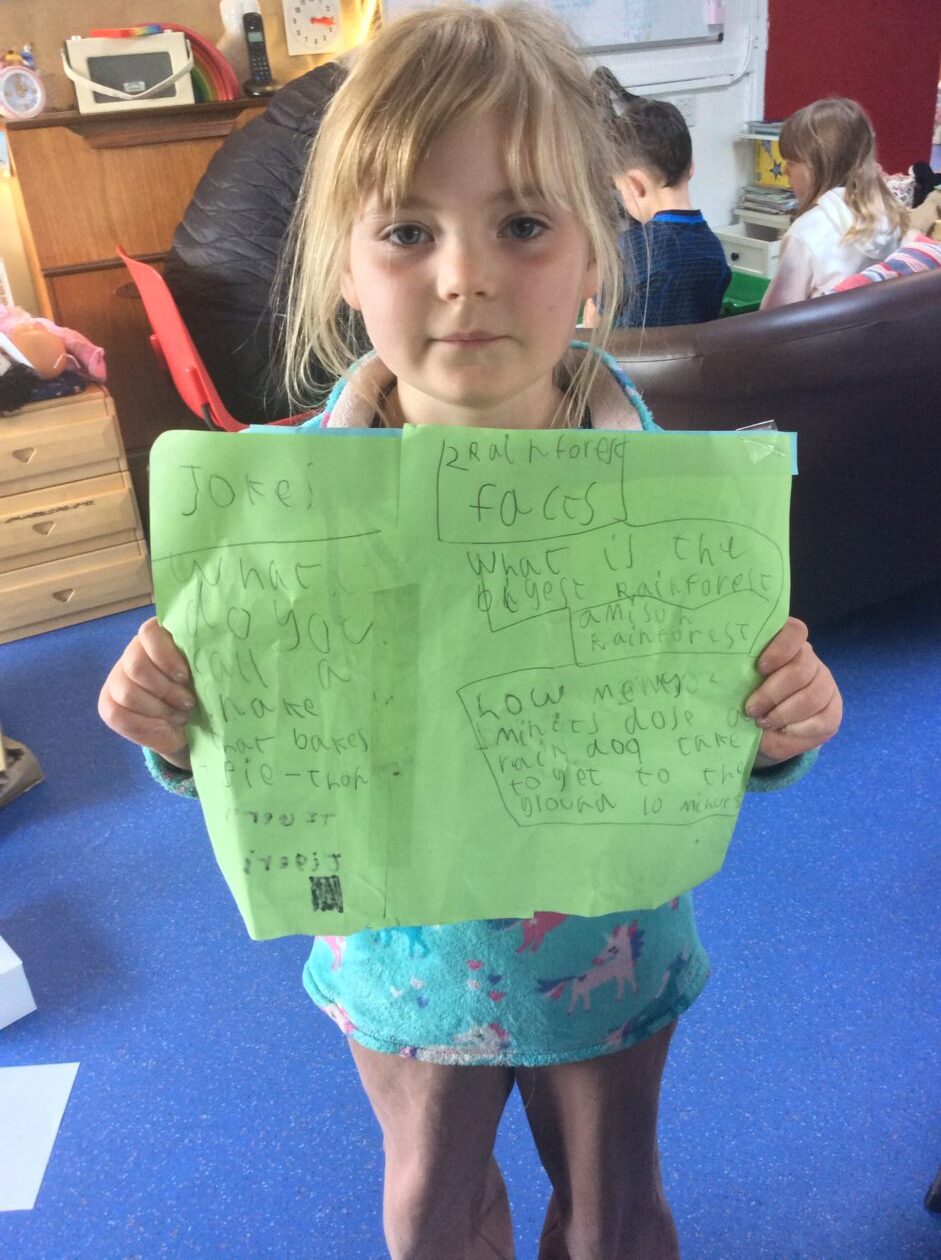 Jokes
What
do you
call a
snake
that bakes
pie-thon
2 Rainforest
facts
what is the
bigest Rainforest
amison
Rainforest
how meney
minits dose a
rain dog take
to get to the
ground 10 minues